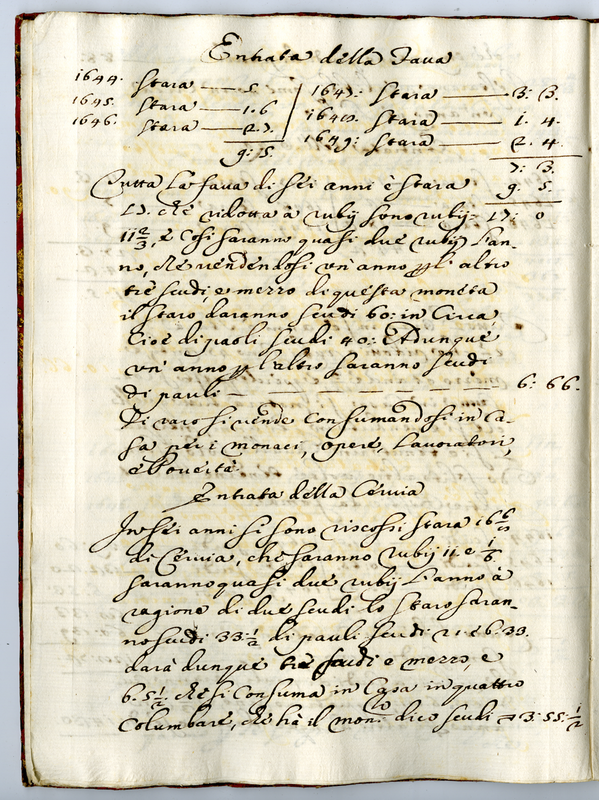 Entrata della Fava
1644. Stara — 5. 1647: Stara — 3: 3.
1645. Stara — 1. 6 1648. Stara — 1. 4.
1646. Stara — 2. 7. 1649: Stara — 2. 4
9: 5. 7: 3.
Tutta la fava di sei anni è stara 9. 5.
17. che ridotta à rubij sono rubij 17: 0
11 2/3, e così saranno quasi due rubij l'an-
no, che vendendosi un'anno p l'altro
tre scudi, e mezzo di questa moneta
il staro daranno scudi 60: in circa
cioè di paoli scudi 40: Adunque
un'anno p l'altro saranno scudi
di pauli — 6: 66.
Di raro si vende consumandosi in ca-
sa per i monaci, opere, lavoratori,
e Povertà.
Entrata della Cervia
In sei anni si sono riscossi stara 16 6/8
di Cervia, che saranno rubij 11 e 1/6
saranno quasi due rubij l'anno à
ragione di due scudi lo staro saran-
no scudi 33: 1/2 di pauli scudi 21: e 6: 33.
darà dunque tre scudi e mezzo, e
6. 5 1/2. che si consuma in Casa in quattro
Columbare, che hà il mon.ro dico scudi 3: 55: 1/2